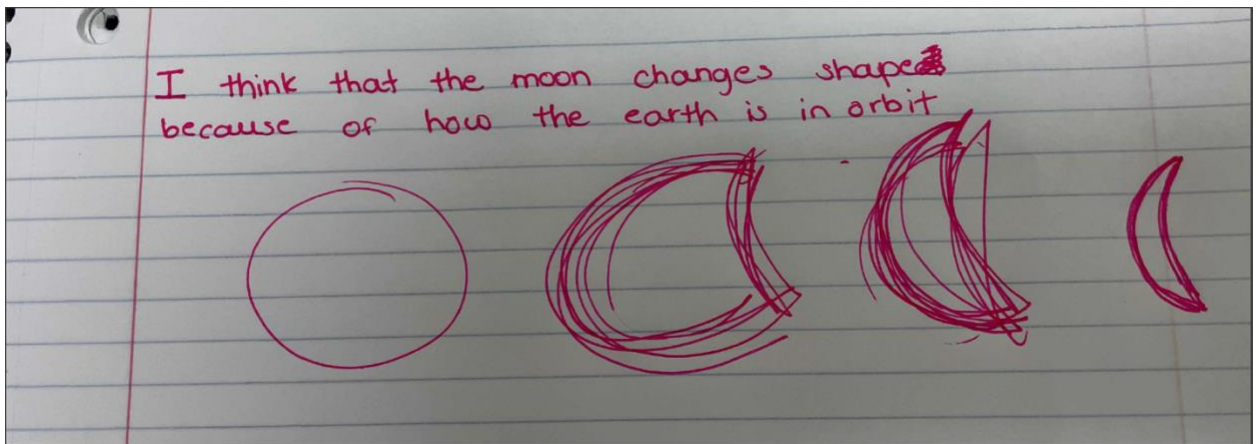 I think that the moon changes shape
because of how the earth is in orbit